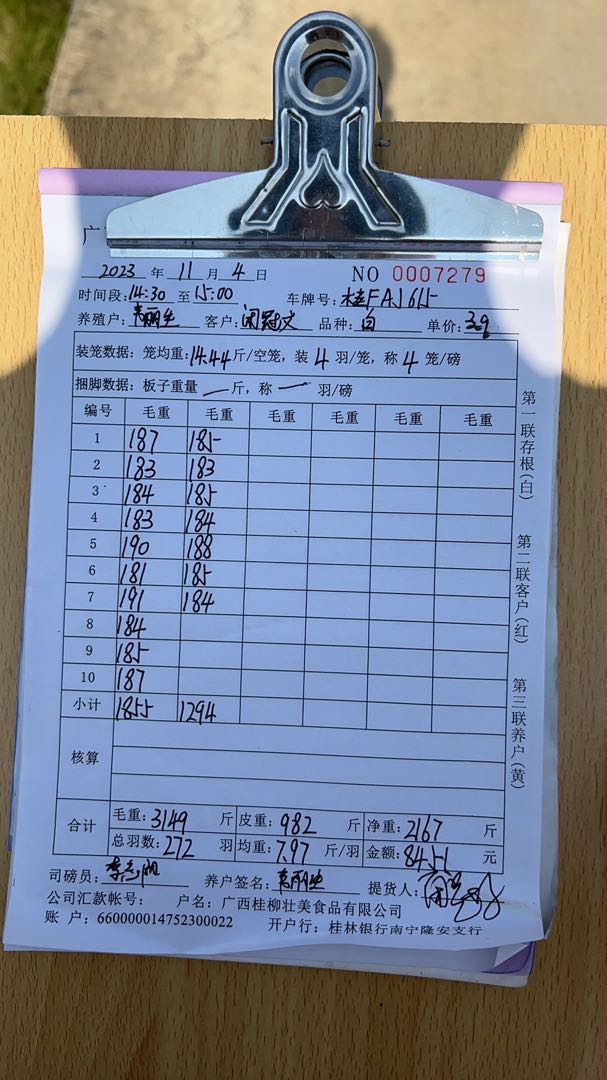 广
2023 年 11 月 4 日 NO 0007279
时间段:14:30 至 15:00 车牌号: 桂FAJ615
养殖户: 客户: 品种: 白 单价: 3.9
装笼数据: 笼均重:14.44斤/空笼, 装 4 羽/笼, 称 4 笼/磅
捆脚数据: 板子重量 一 斤, 称 一 羽/磅
编号 毛重 毛重 毛重 毛重 毛重 毛重
1 187 185
2 183 183
3 184 185
4 183 184
5 190 188
6 181 185
7 191 184
8 184
9 185
10 187
小计 1855 1294
核算
合计 毛重: 3149 斤 皮重: 982 斤 净重: 2167 斤
总羽数: 272 羽 均重: 7.97 斤/羽 金额: 8451 元
司磅员: 养户签名: 提货人:
公司汇款帐号: 户名: 广西桂柳壮美食品有限公司
账 户: 660000014752300022 开户行: 桂林银行南宁隆安支行
第一联存根(白)
第二联客户(红)
第三联养户(黄)